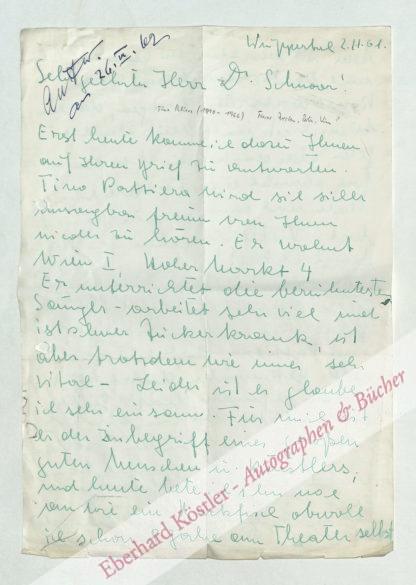 Wuppertal 2.11.61.
Sehr geehrter Herr Dr. Schnoor!
Antw.
am 26. II. 62
Tino Pattiera (1890 - 1966)
Erst heute komme ich dazu Ihnen
auf Ihren Brief zu antworten.
Tino Pattiera wird sich sicher
unsagbar freuen von Ihnen
wieder zu hören. Er wohnt
Wien I, Hoher Markt 4
Er unterrichtet die berühmtesten
Sänger - arbeitet sehr viel und
ist schwer Zuckerkrank, ist
aber trotzdem wie immer sehr
vital - Leider ist er glaube
ich sehr einsam. Für mich ist
Er der Inbegriff eines großen
guten Menschen u. Künstlers,
und heute bete ich ihn noch
an wie ein obwohl
ich schon Jahre am Theater selbst
Eberhard Köstler - Autographen & Bücher